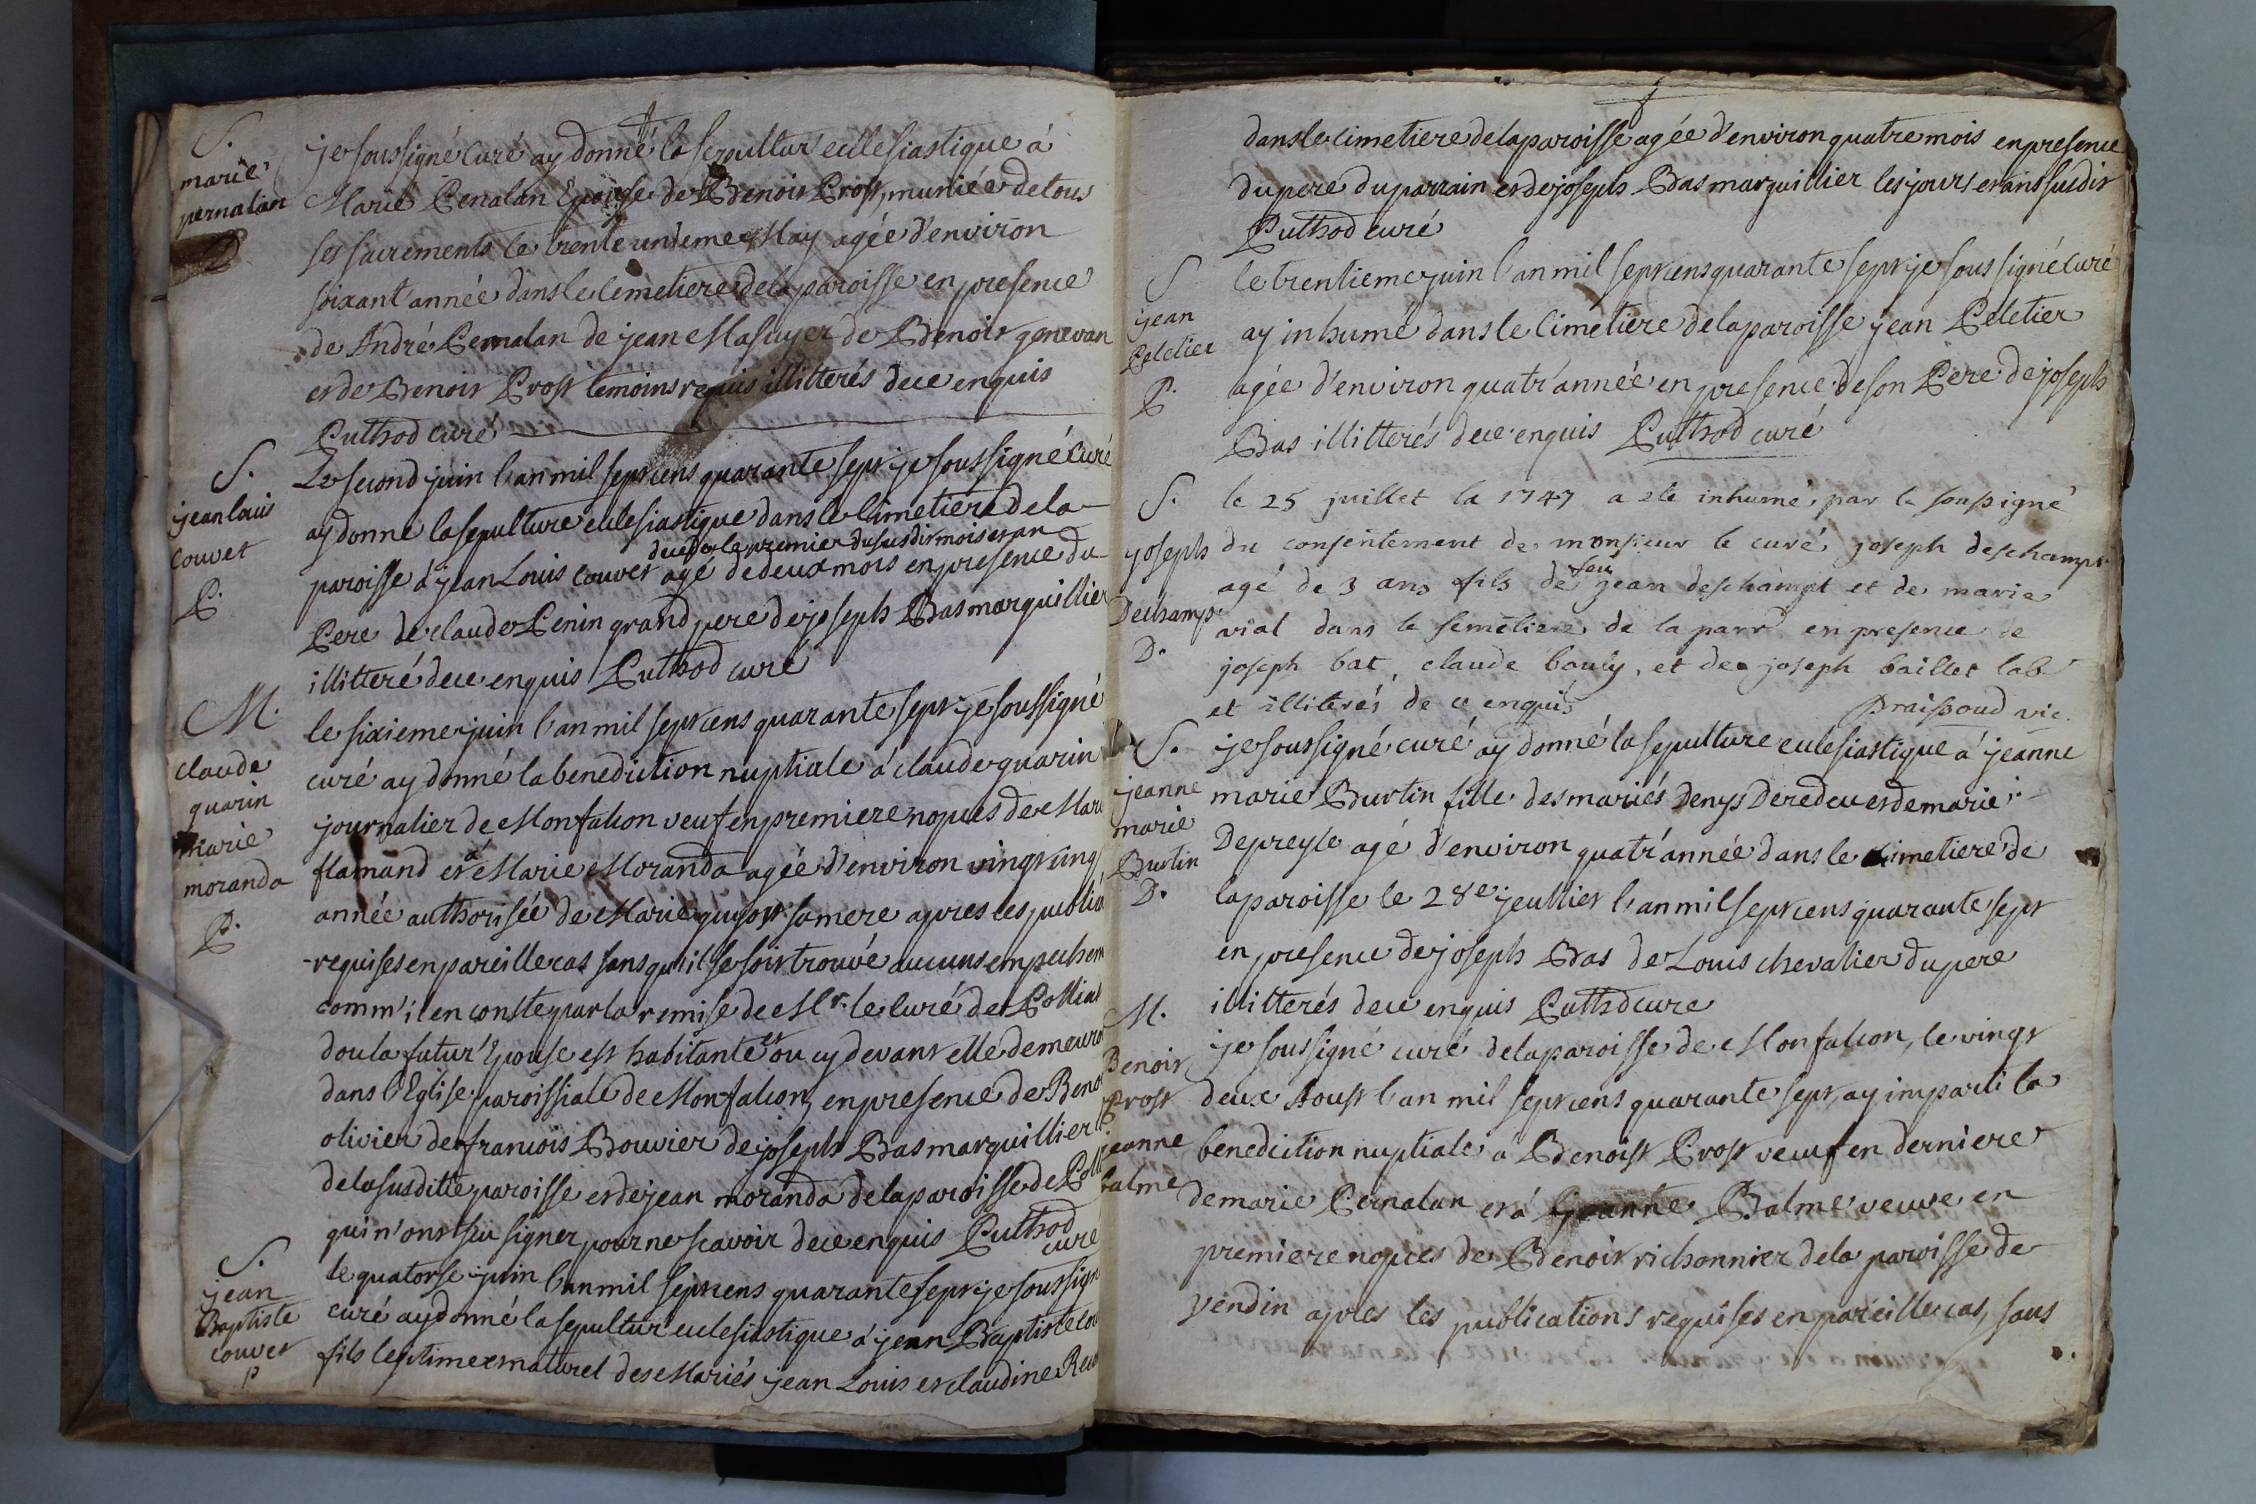 S.
marie
pernalan
D
je soussigné Curé ay donné la sepultur' ecclesiastique á
Marie Pernalan Epouse de Benoit Prost, munïée de tous
ses sacrements le trente unieme May agée d'environ
soixant' année dans le cemetiere de la paroisse en presence
de André Pernalan de jean Masuyer de Benoit genevan
et de Benoit Prost temoins requis illitterés de ce enquis
Puthod curé
S.
jean louis
couvet
P.
Le second juin l'an mil sept cens quarante sept je soussigné Curé
ay donné la sepulture eclesiastique dans le Cimetiere de la
decedé le premier du susdit mois et an
paroisse á jean Louis couvet agé de deux mois en presence du
Pere de claude Penin grand pere de joseph Bas marguillier
illitteré de ce enquis Puthod curé
M.
claude
guarin
marie
moranda
P.
le sixieme juin l'an mil sept cens quarante sept je soussigné
curé ay donné la benediction nuptiale á claude guarin
journalier de Monfalcon veuf en premiere nopces de Mari
flamand et á Marie Moranda agée d'environ vingt cinq
année authorisée de Marie guyot sa mere apres les publica
requises en pareille cas sans qu'il se soit trouvé aucuns empechem
comm' il en conste par la remise de Mr. le Curé de Polliat
dou la futur' Epouse est habitante et ou cy devant elle demeuroi
dans l'Eglise paroissiale de Monfalcon, en presence de Beno
olivier de francois Bouvier de joseph Bas marguillier
de la susditte paroisse et de jean moranda de la paroisse de Poll
qui n'ont sçu signer pour ne scavoir de ce enquis Puthod
curé
S.
jean
Baptiste
couvet
P
le quatorse juin l'an mil sept cens quarante sept je soussign
curé ay donné la sepultur' eclesiastique á jean Baptiste cou
fils legitime et naturel des Mariés jean Louis et claudine
dans le cimetiere de la paroisse agée d'environ quatre mois en presence
du pere du parrain et de joseph Bas marguillier les jours et ans susdit
Puthod curé
S
jean
Peletier
P.
le trentieme juin l'an mil sept cens quarante sept je soussigné Curé
ay inhumé dans le Cimetiere de la paroisse jean Peletier
agée d'environ quatr' année en presence de son Pere de joseph
Bas illitterés de ce enquis Puthod curé
S.
joseph
Dechamps
D.
le 25 juillet la 1747 a ete inhumé par le soussigné
du consentement de monsieur le curé joseph deschamps
feu
agé de 3 ans fils de jean deschampt et de marie
vial dans le semetiere de la parr. en presence de
joseph bat, claude bouly, et de joseph baillet lab
et illiterés de ce enquis Praissoud vic.
S.
jeanne
marie
Burtin
D.
je soussigné curé ay donné la sepulture eclesiastique á jeanne
marie Burtin fille des mariés denys Deredeu et de marie
Depreyle agé d'environ quatr' année dans le cimetiere de
la paroisse le 28e jeullier l'an mil sept cens quarante sept
en presence de joseph Bas de Louis chevalier du pere
illitterés de ce enquis Puthod cure
M.
Benoit
Prost
jeanne
balme
je soussigné curé de la paroisse de Monfalcon, le vingt
deux Aoust l'an mil sept cens quarante sept, ay imparti la
benediction nuptiale á Benoist Prost veuf en derniere
de marie Pernalan et á jeanne Balme veuve en
premiere nopces de Benoit richonnier de la paroisse de
Vendin apres les publications requises en pareille cas, sans